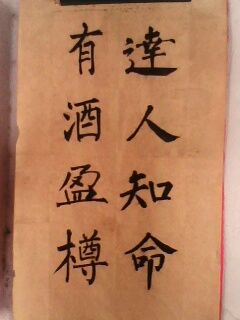 達人知命
有酒盈樽